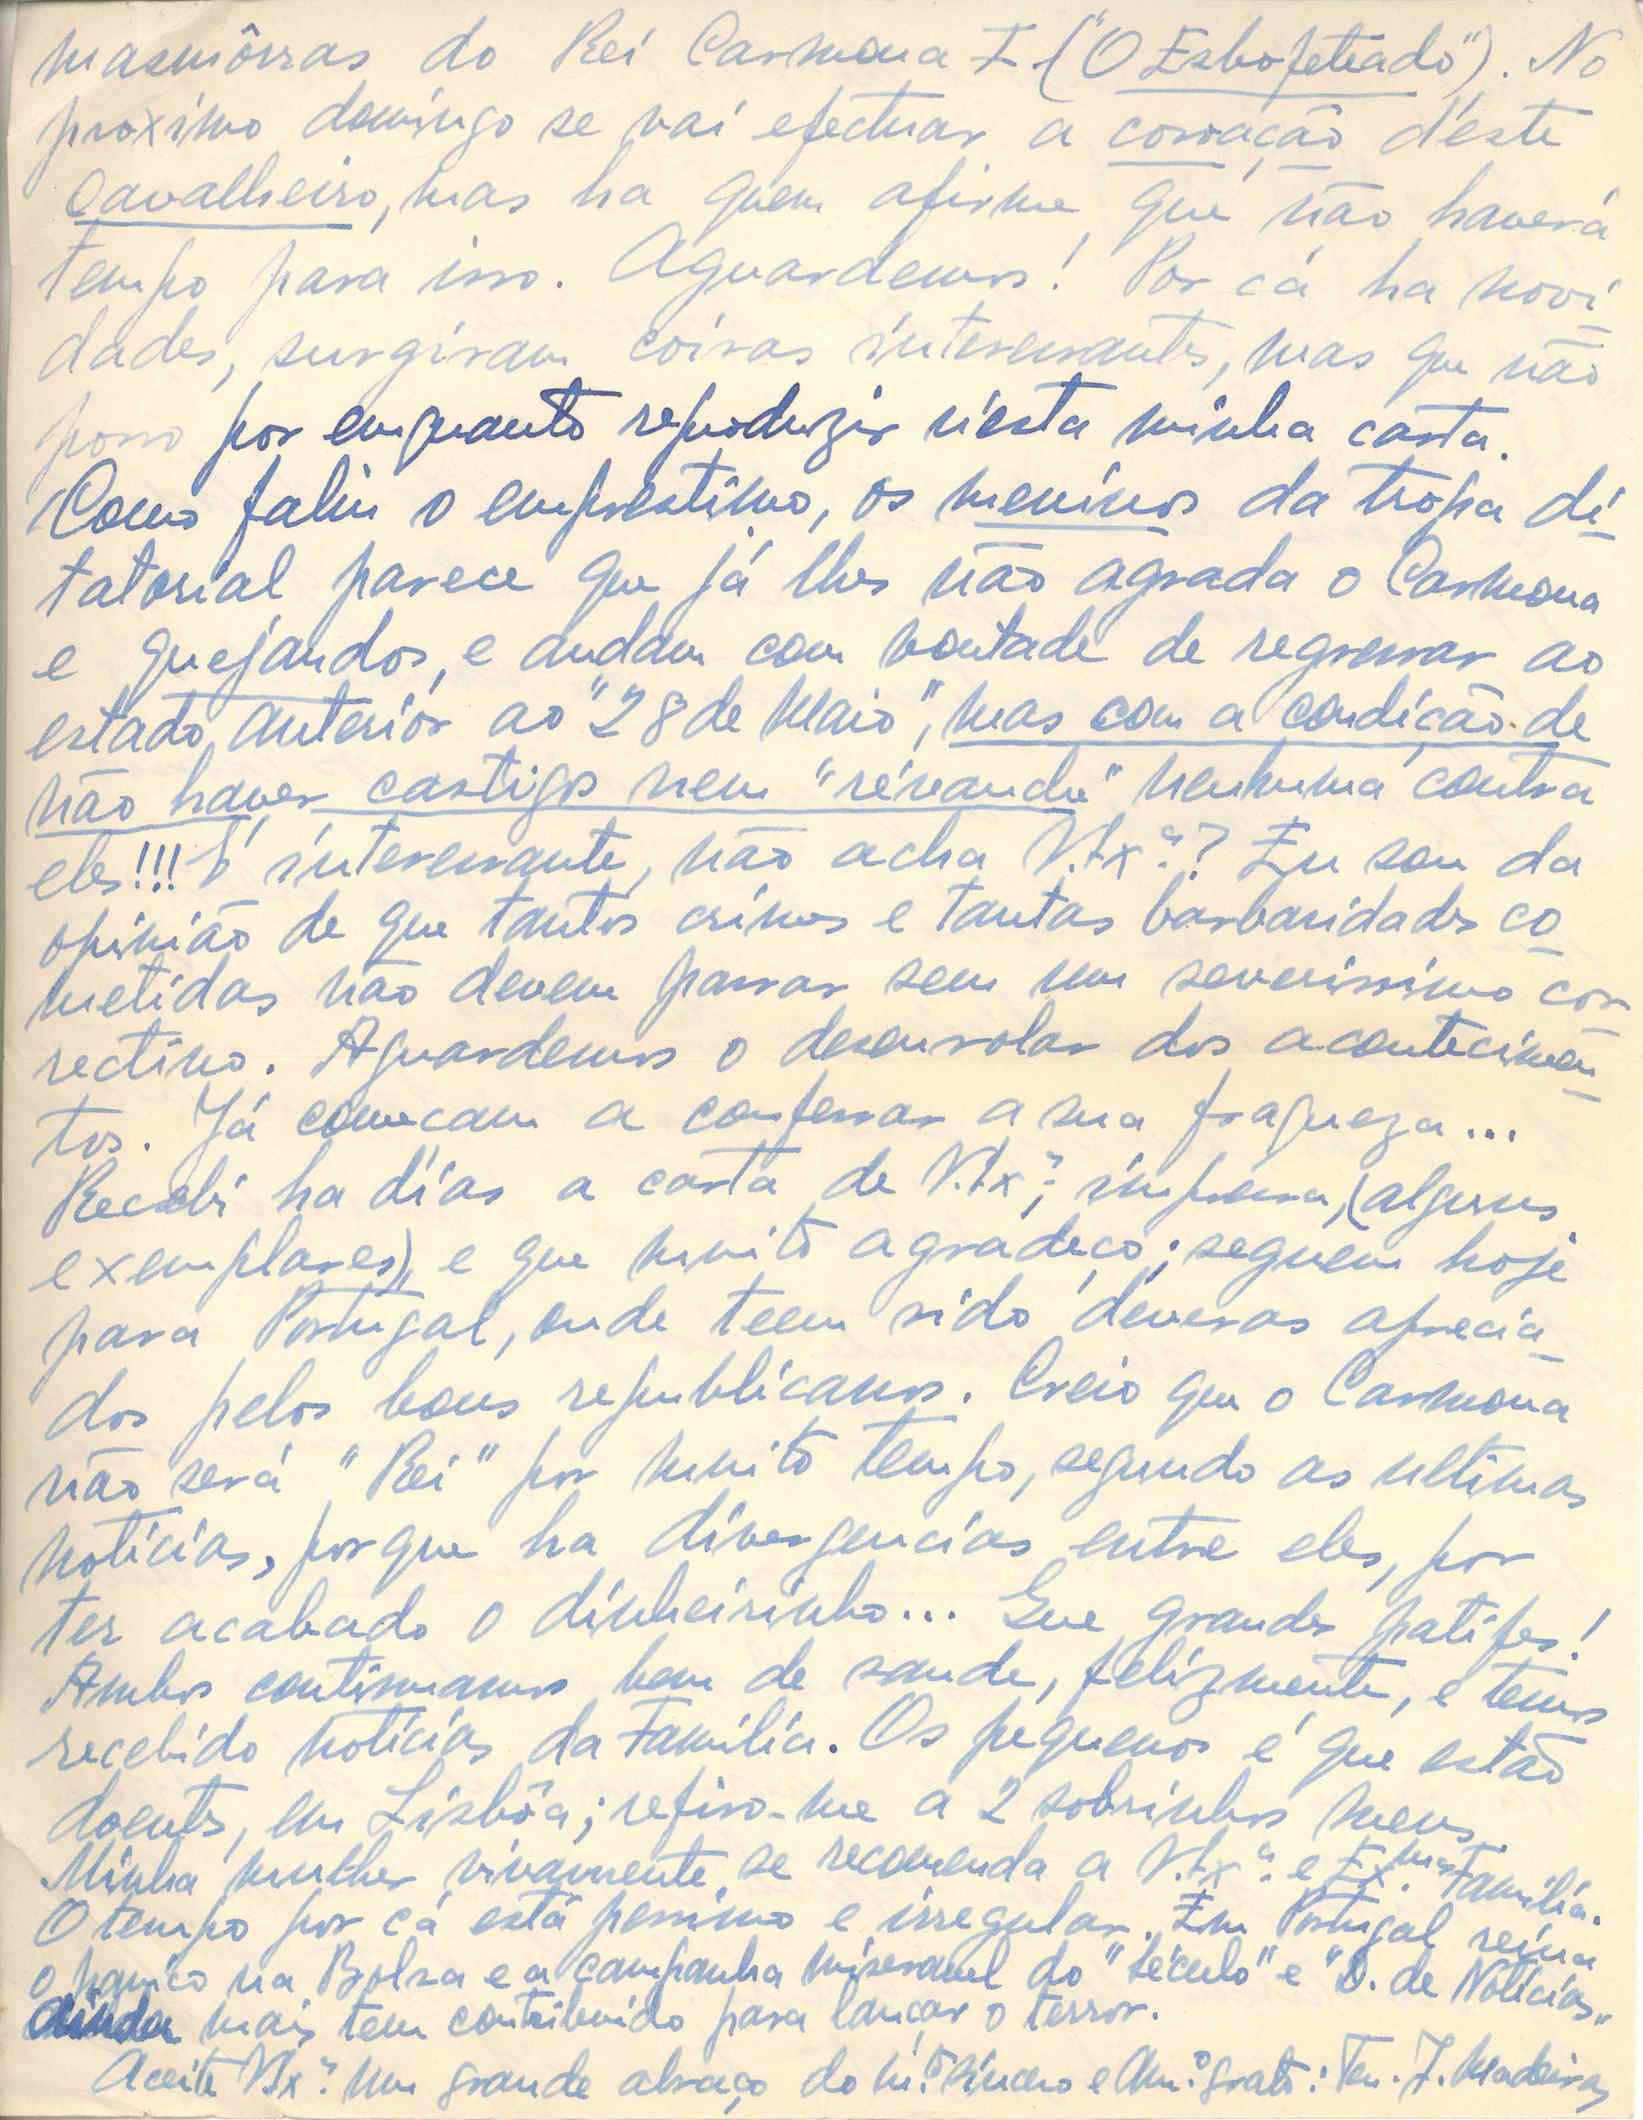 masmôrras do Rei Carmona I ("O Esbofeteado"). No
proximo domingo se vai efectuar a coroação d'éste
Cavalheiro, mas ha quem afirme que não haverá
tempo para isso. Aguardemos! Por cá ha novi-
dades, surgiram coisas interessantes, mas que não
posso por emquanto reproduzir n'esta minha carta.
Como faliu o emprestimo, os meninos da tropa di-
tatorial parece que já lhes não agrada o Carmona
e quejandos, e andam com vontade de regressar ao
estado anterior ao "28 de Maio", mas com a condicão de
não haver castigo nem "révanche" nenhuma contra
eles!!! É interessante, não acha V. Exª? Eu sou da
opinião de que tantos crimes e tantas barbaridades co-
metidas não devem passar sem um severissimo cor-
rectivo. Aguardemos o desenrolar dos acontecimen-
tos. Já comecam a confessar a sua fraqueza...
Recebi ha dias a carta de V. Exª, impressa, (alguns
exemplares), e que muito agradeço; seguem hoje
para Portugal, onde teem sido deveras aprecia-
dos pelos bons republicanos. Creio que o Carmona
não será "Rei" por muito tempo, segundo as ultimas
noticias, porque ha divergencias entre eles, por
ter acabado o dinheirinho... Que grandes patifes!
Ambos continuamos bem de saude, felizmente, e temos
recebido noticias da Familia. Os pequenos é que estão
doentes, em Lisbôa; refiro-me a 2 sobrinhos meus.
Minha mulher vivamente se recomenda a V. Exª e Ex.ma Familia.
O tempo por cá está pessimo e irregular. Em Portugal reina
o panico na Bolsa e a campanha miseravel do "Século" e "D. de Noticias"
ainda mais tem contribuido para lançar o terror.
Aceite V. Exª um grande abraço do m.to sincero e Am.º grato: Ten. J. Madeira